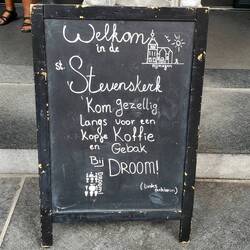 Welkom
in de
Nijmegen
st. Stevenskerk
'Kom gezellig
langs voor een
Kopje Koffie
en Gebak
Bij DROOM!
Droom!